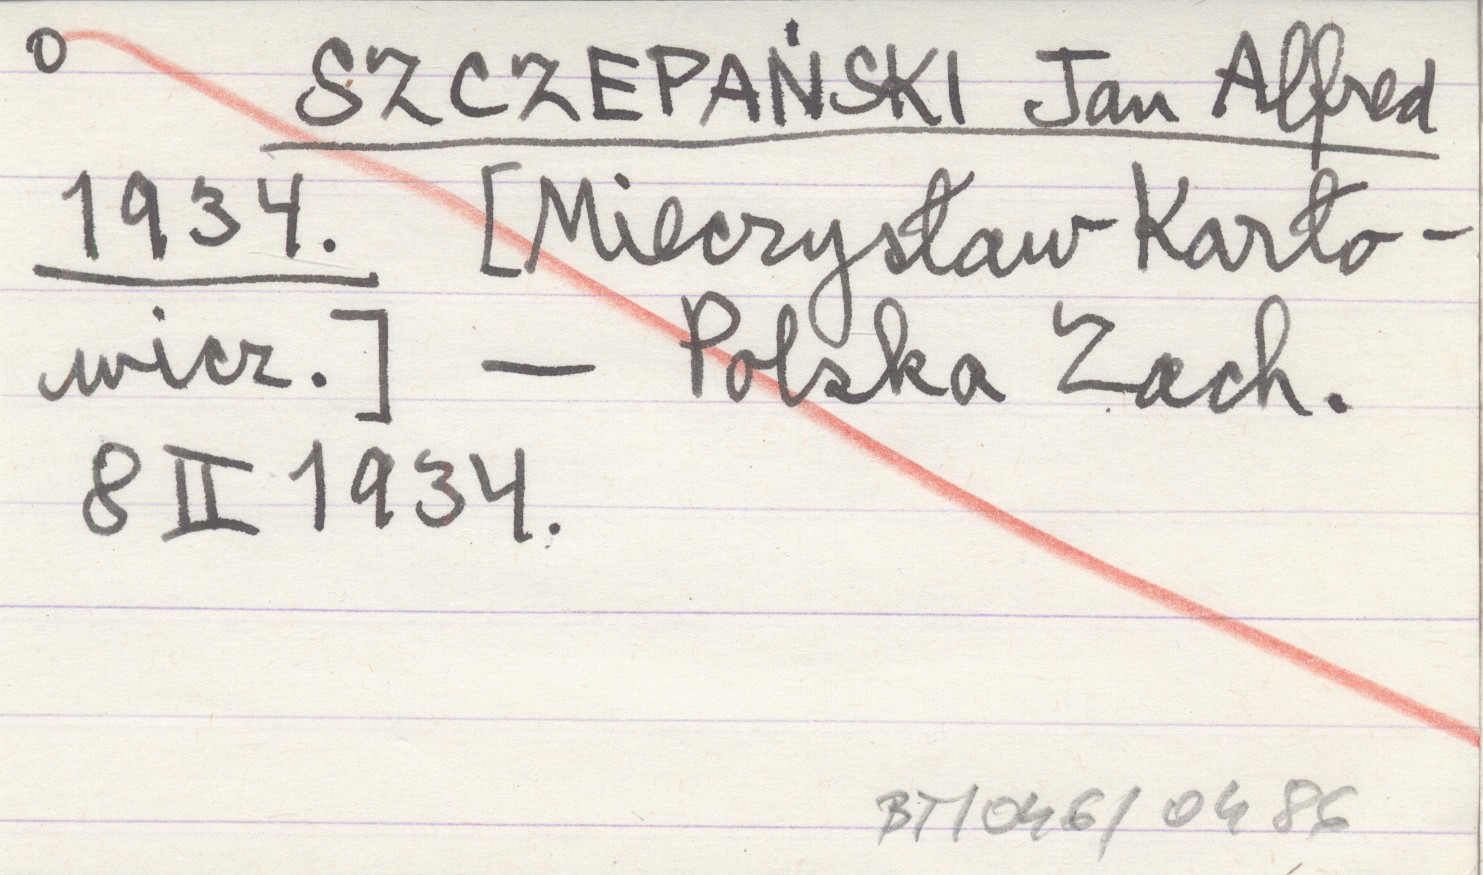 O SZCZEPAŃSKI Jan Alfred
1934. [Mieczysław Karło-
wicz.] — Polska Zach.
8 II 1934.
BT/046/0486